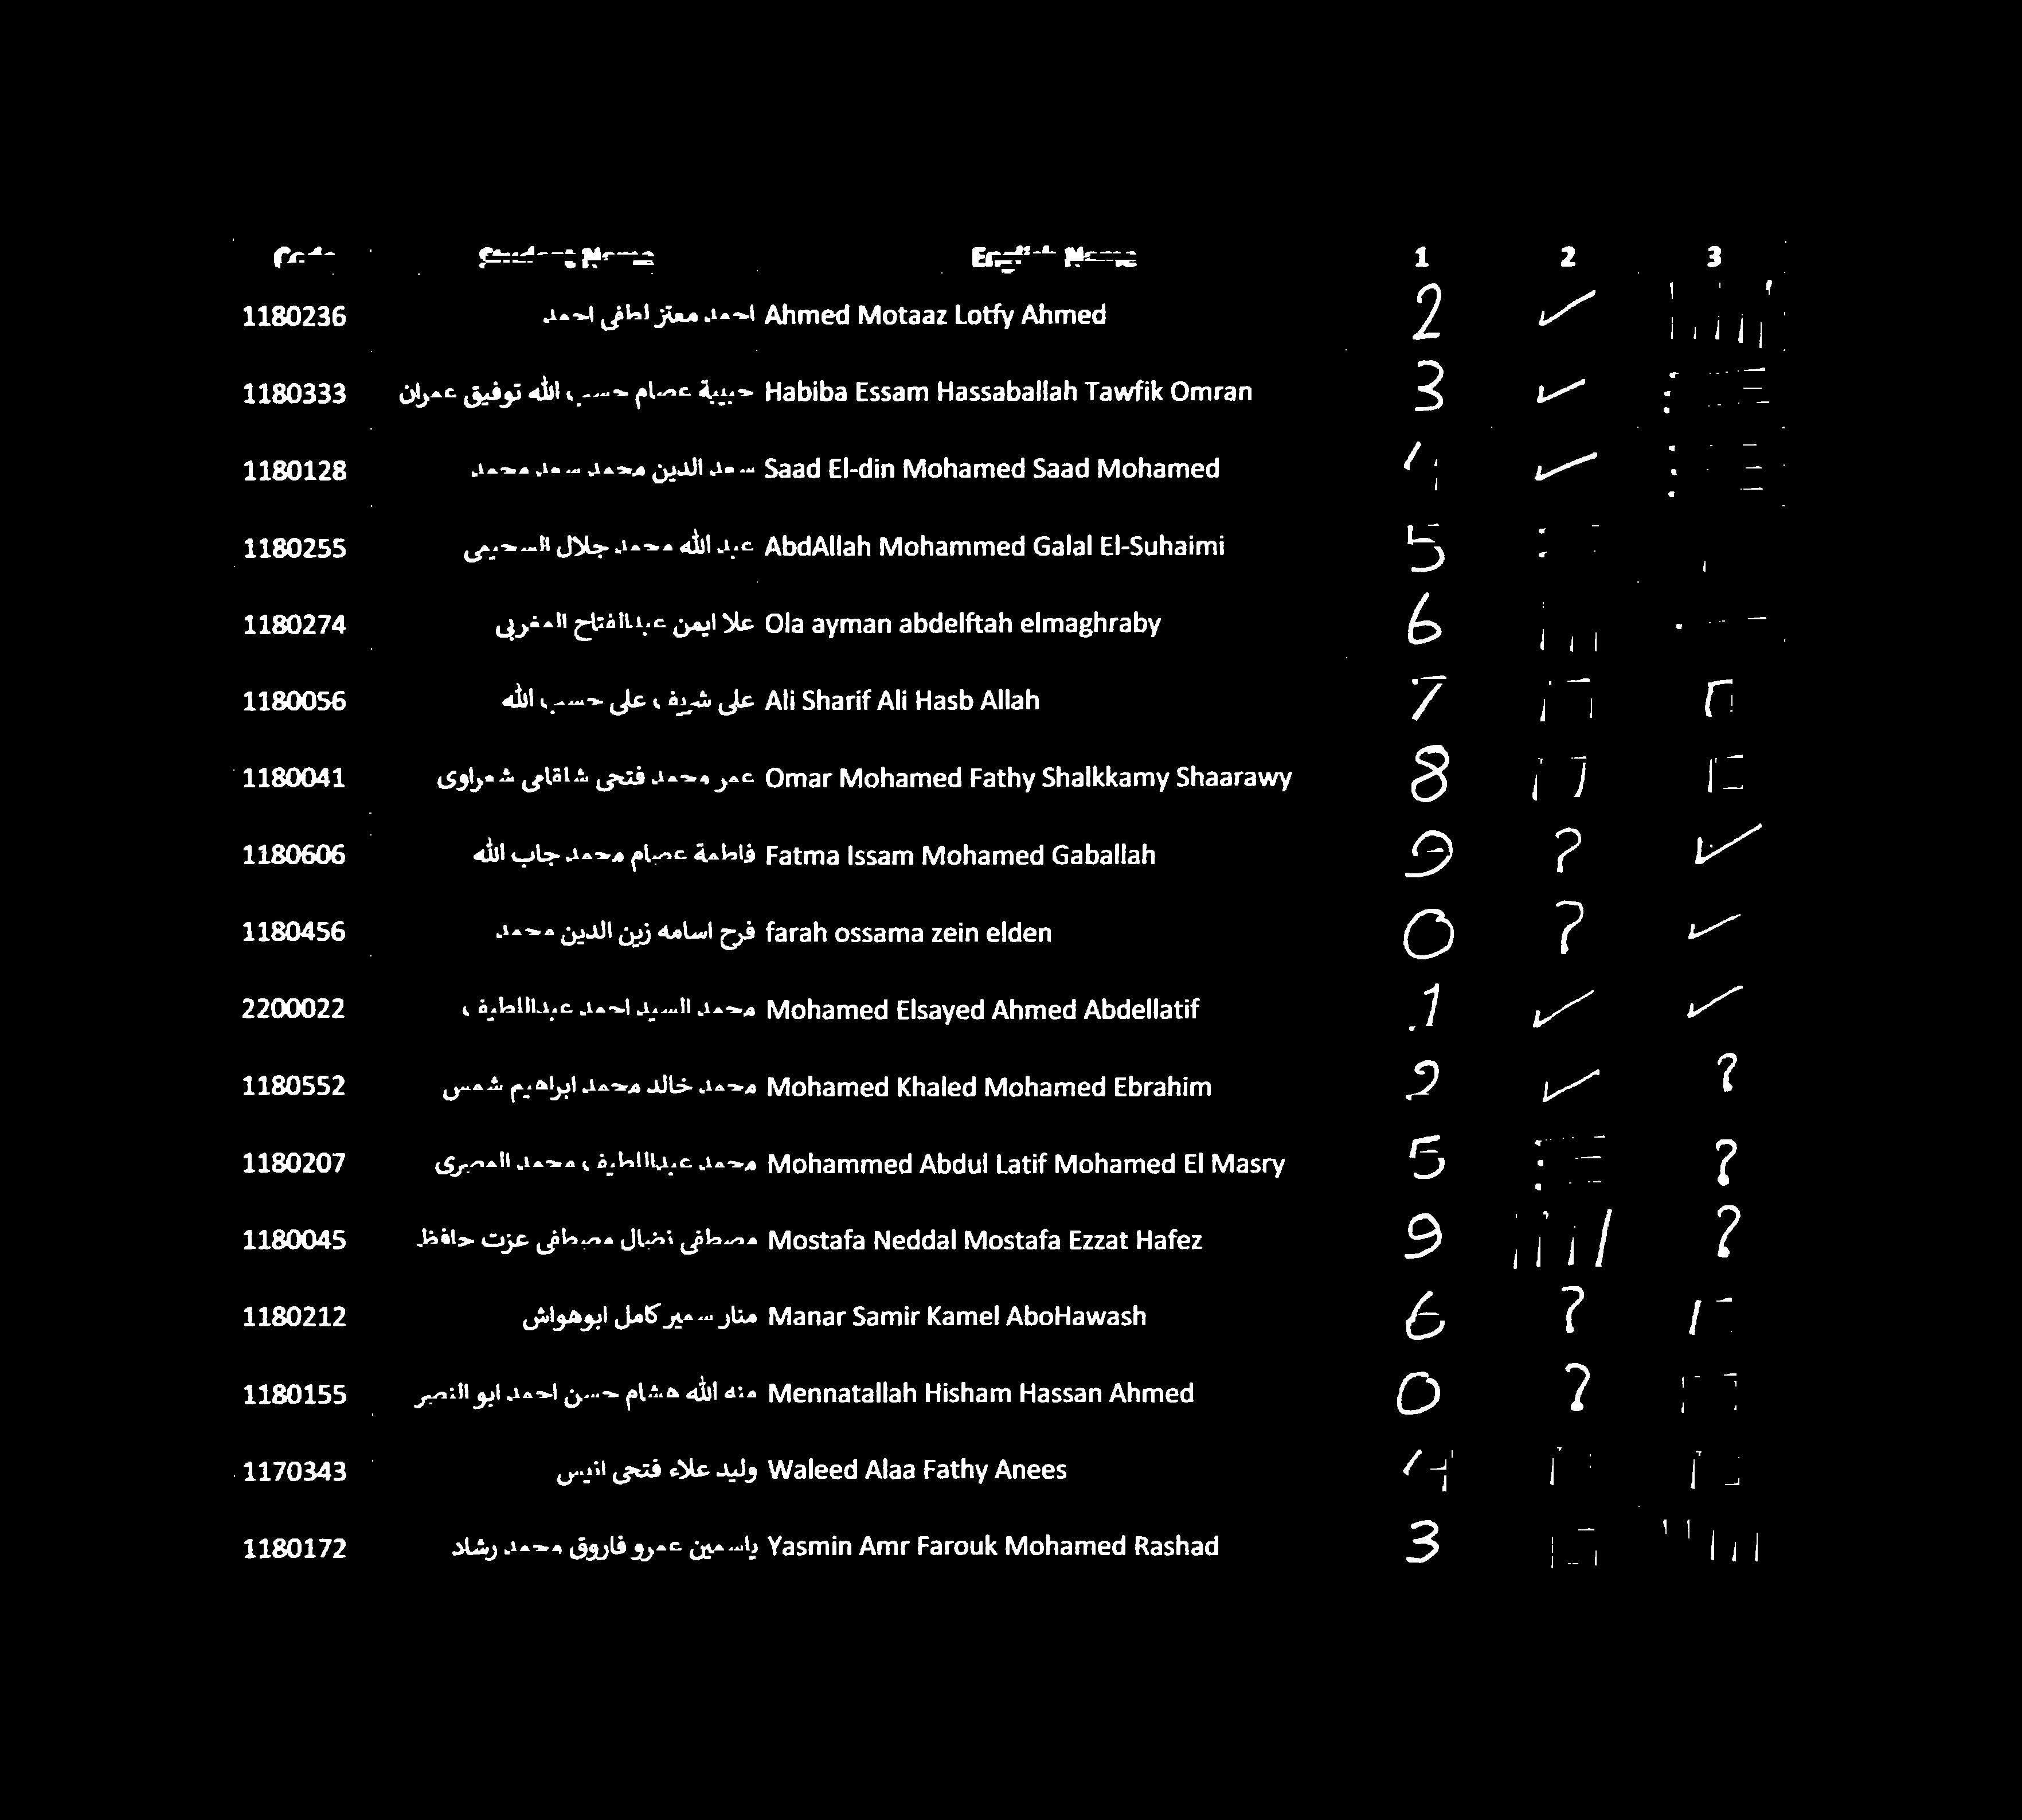 Code Student Name English Name 1 2 3
1180236 احمد معتز لطفى احمد Ahmed Motaaz Lotfy Ahmed 2 ✓
1180333 حبيبة عصام حسب الله توفيق عمران Habiba Essam Hassaballah Tawfik Omran 3 ✓
1180128 سعد الدين محمد سعد محمد Saad El-din Mohamed Saad Mohamed 4 ✓
1180255 عبد الله محمد جلال السحيمى AbdAllah Mohammed Galal El-Suhaimi 5
1180274 علا ايمن عبدالفتاح المغربى Ola ayman abdelftah elmaghraby 6
1180056 على شريف على حسب الله Ali Sharif Ali Hasb Allah 7
1180041 عمر محمد فتحى شلقامى شعراوى Omar Mohamed Fathy Shalkkamy Shaarawy 8
1180606 فاطمة عصام محمد جاب الله Fatma Issam Mohamed Gaballah 9 ? ✓
1180456 فرح اسامه زين الدين محمد farah ossama zein elden 0 ? ✓
2200022 محمد السيد احمد عبداللطيف Mohamed Elsayed Ahmed Abdellatif 1 ✓ ✓
1180552 محمد خالد محمد ابراهيم شمس Mohamed Khaled Mohamed Ebrahim 2 ✓ ?
1180207 محمد عبداللطيف محمد المصرى Mohammed Abdul Latif Mohamed El Masry 5 ?
1180045 مصطفى نضال مصطفى عزت حافظ Mostafa Neddal Mostafa Ezzat Hafez 9 ?
1180212 منار سمير كامل ابوهواش Manar Samir Kamel AboHawash 6 ?
1180155 منه الله هشام حسن احمد ابو النصر Mennatallah Hisham Hassan Ahmed 0 ?
1170343 وليد علاء فتحى انيس Waleed Alaa Fathy Anees 4
1180172 ياسمين عمرو فاروق محمد رشاد Yasmin Amr Farouk Mohamed Rashad 3